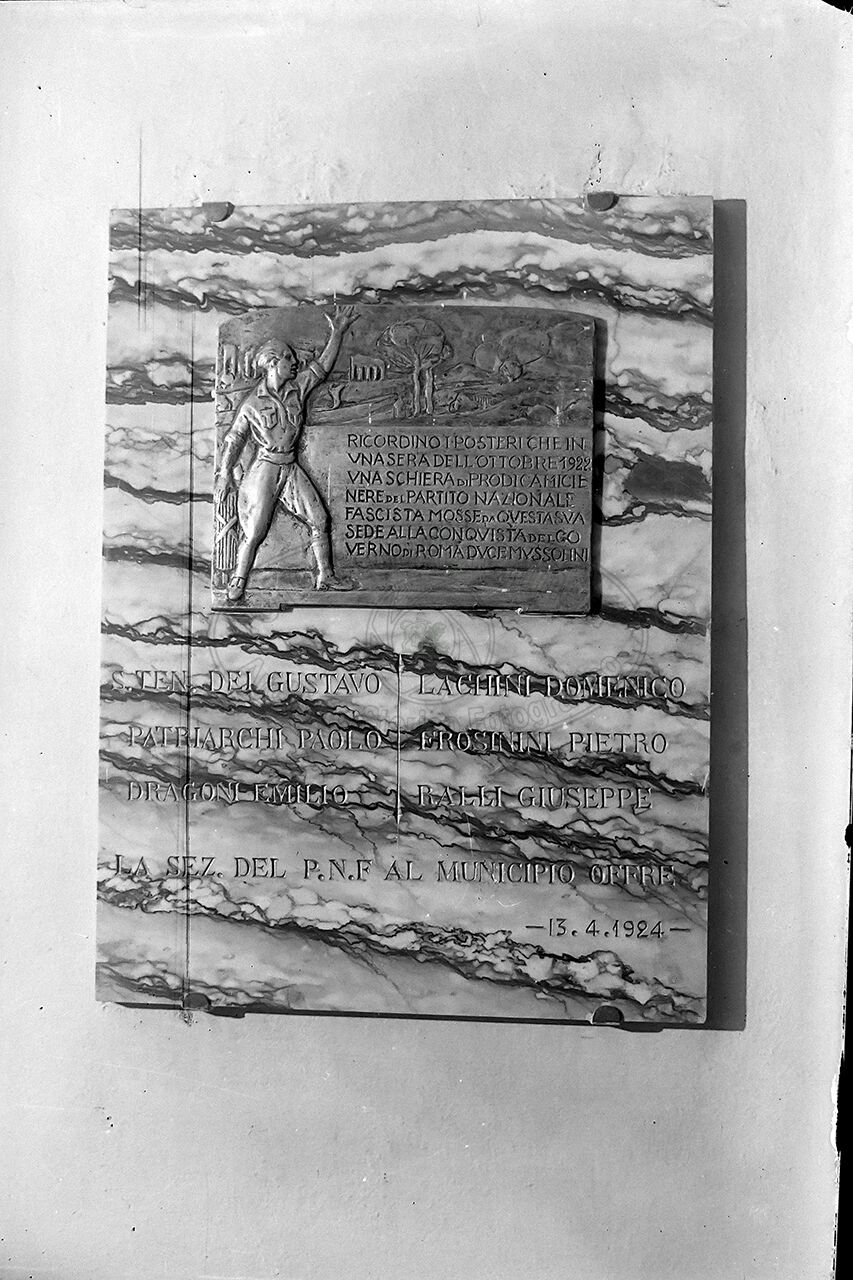 RICORDINO I POSTERI CHE IN
VNA SERA DELL'OTTOBRE 1922
VNA SCHIERA DI PRODI CAMICIE
NERE DEL PARTITO NAZIONALE
FASCISTA MOSSE DA QVESTA SVA
SEDE ALLA CONQVISTA DEL GO
VERNO DI ROMA DVCE MVSSOLINI
S. TEN. DEI GUSTAVO LACHINI DOMENICO
PATRIARCHI PAOLO FROSININI PIETRO
DRAGONI EMILIO RALLI GIUSEPPE
LA SEZ. DEL P.N.F AL MUNICIPIO OFFRE
—13.4.1924—